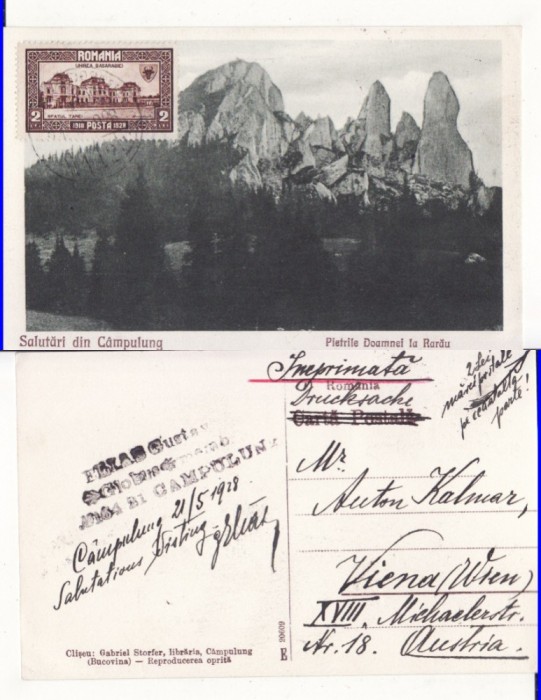 ROMANIA
UNIREA BASARABIEI
SFATUL TAREI
2 1918 POSTA 1928 2
Salutări din Câmpulung
Pietrile Doamnei la Rarău
Imprimată
România
Drucksache
Cartă Poștală
2 Lei
mărci poștale
pe cealaltă
parte!
ELIAS Gustav
CAMPULUNG
Câmpulung 21/5 1928
Salutations Disting
Mr.
Anton Kalmar,
Viena (Wien)
XVIII, Michaelerstr.
Nr. 18. Austria.
Clișeu: Gabriel Storfer, librăria, Câmpulung
(Bucovina) — Reproducerea oprită
E 20609